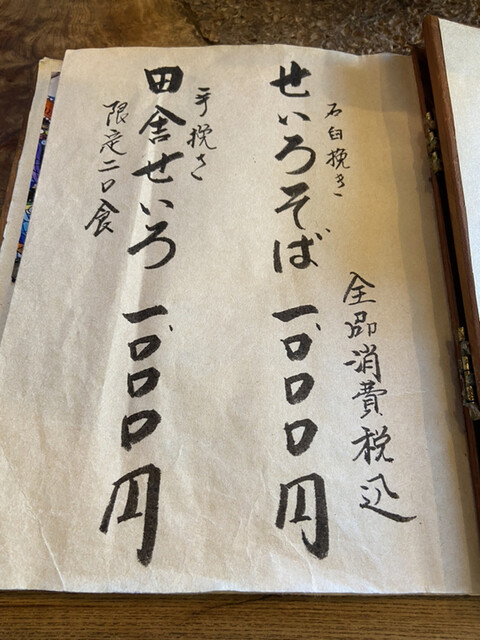 全品消費税込
石臼挽き
せいろそば 一、〇〇〇円
手挽き
田舎せいろ 一、〇〇〇円
限定二〇食